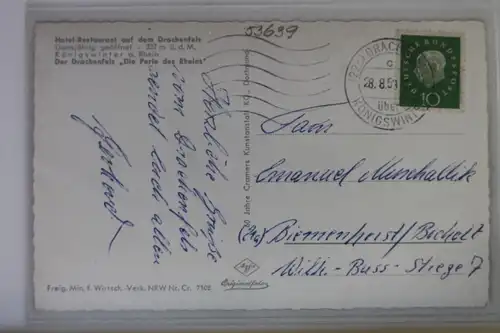 53639
Hotel-Restaurant auf dem Drachenfels
Ganzjährig geöffnet - 321 m ü. d. M.
Königswinter a. Rhein
Der Drachenfels „Die Perle des Rheins“
Herzliche Grüße
vom Drachenfels
sendet Euch allen
Gerhard
50 Jahre Cramers Kunstanstalt KG. Dortmund
DEUTSCHE BUNDESPOST
10
(22c) DRACHENFELS
c
28.8.59
über
KÖNIGSWINTER
Fam.
Emanuel Muschallik
(21a) Biemenhorst/Bocholt
Wilh.-Buss-Stiege 7
Agfa
Originalfoto
Freig. Min. f. Wirtsch.-Verk. NRW Nr. Cr. 7508